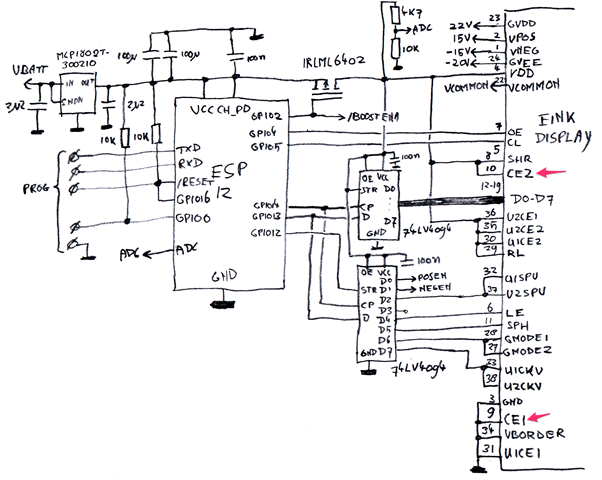 MCP1802T-
300210
VBATT
IN OUT
SHDN
2µ2
2µ2
100µ
100µ
100n
IRLML6402
4K7
ADC
10K
10K
10K
VCC CH_PD
GPIO2
/BOOSTENA
GPIO4
GPIO5
TXD
RXD
/RESET
GPIO16
GPIO0
ESP
12
PROG
ADC
ADC
GND
GPIO13
GPIO12
OE VCC
100n
STR D0
CP
D D7
GND
74LV4094
OE VCC
100n
D0
STR D1
D2
CP D3
D D4
D5
D6
GND D7
74LV4094
POSEN
NEGEN
22V 23 GVDD
15V 2 VPOS
-15V 1 VNEG
-20V 24 GVEE
4 VDD
VCOMMON 22 VCOMMON
EINK
DISPLAY
7 OE
CL
5
8 SHR
10 CE2
12-19
D0-D7
36 U2CE1
35 U2CE2
30 U1CE2
29 RL
32 U1SPV
37 U2SPV
6 LE
11 SPH
28 GMODE1
27 GMODE2
33 U1CKV
38 U2CKV
3 GND
9 CE1
34 VBORDER
31 U1CE1